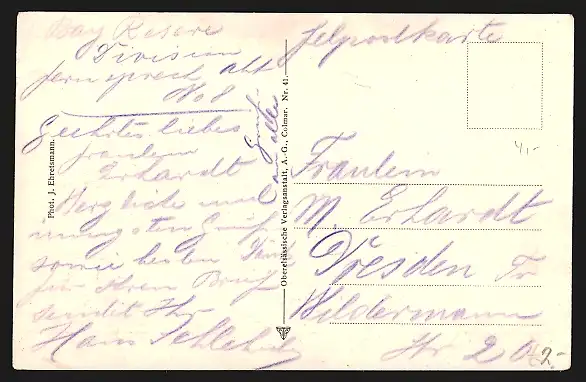 Bay Reserve
Division
fernsprech abt
No 8
Geehrtes liebes
fraulein
Erhardt
Herzliche und
innigsten Gruß
sowie besten Dank
für Ihren Brief
sendet Ihr
Hans
Gruß
an alle
Phot. J. Ehretsmann.
Oberelsässische Verlagsanstalt, A.-G., Colmar. Nr. 41.
feldpostkarte
4,-
Fraulein
M. Erhardt
Dresden Tr
Wildermann
Str 20
2.-